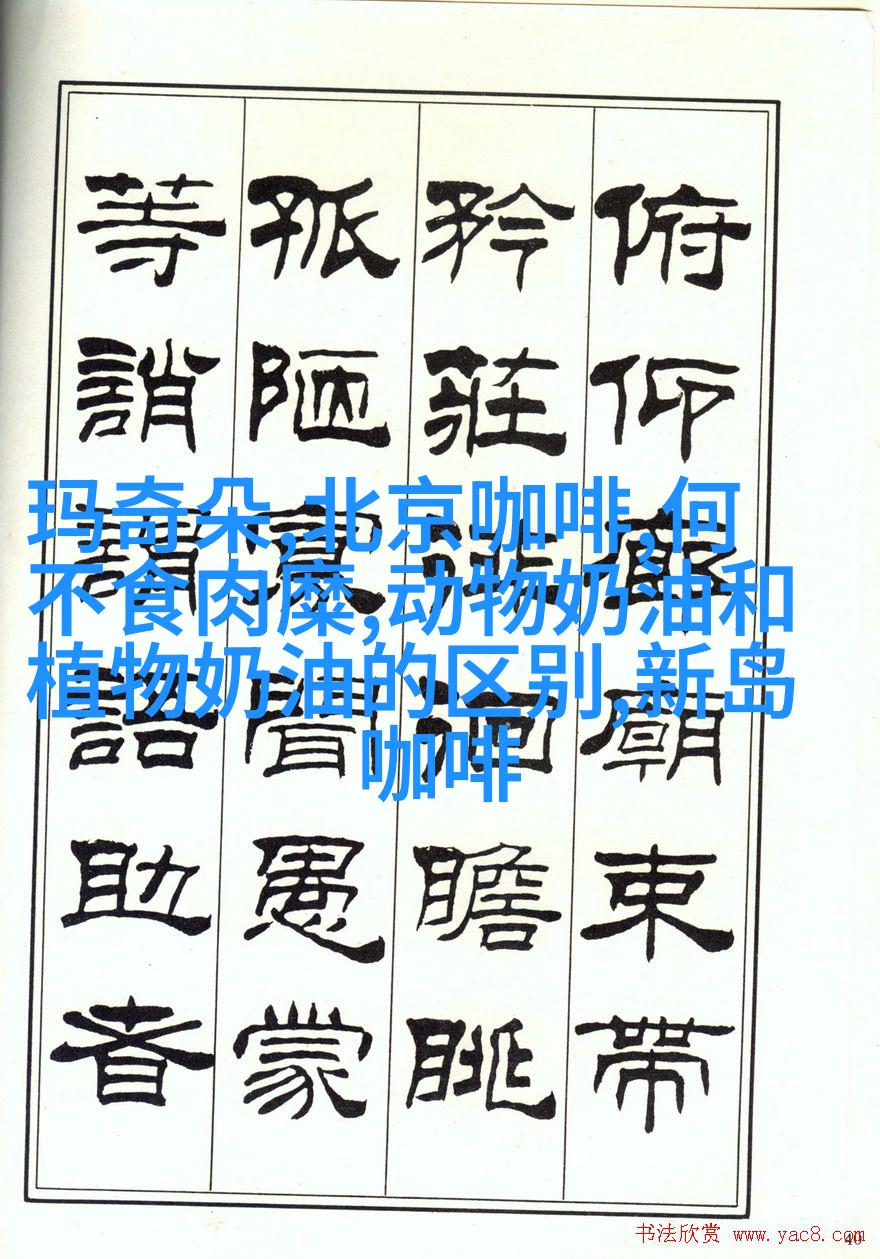 俯仰廊廟束帶
矜莊徘徊瞻眺
孤陋寡聞愚蒙
等誚謂語助者
玛奇朵,北京咖啡,何
不食肉糜,动物奶油和
植物奶油的区别,新岛
咖啡
书法欣赏 www.yac8.com
40